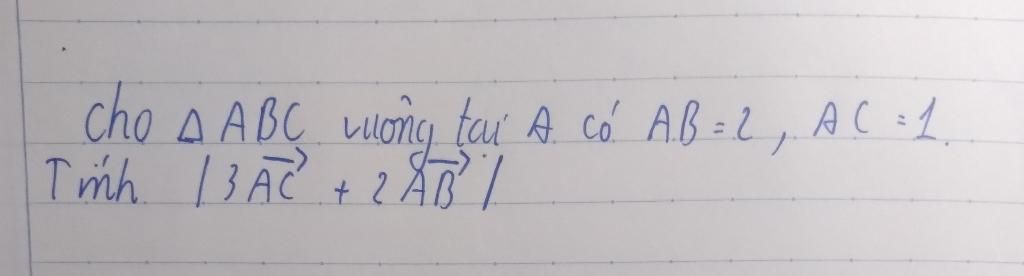 Cho Δ ABC vuông tại A có AB = 2, AC = 1.
Tính |3\overrightarrow{AC} + 2\overrightarrow{AB}|